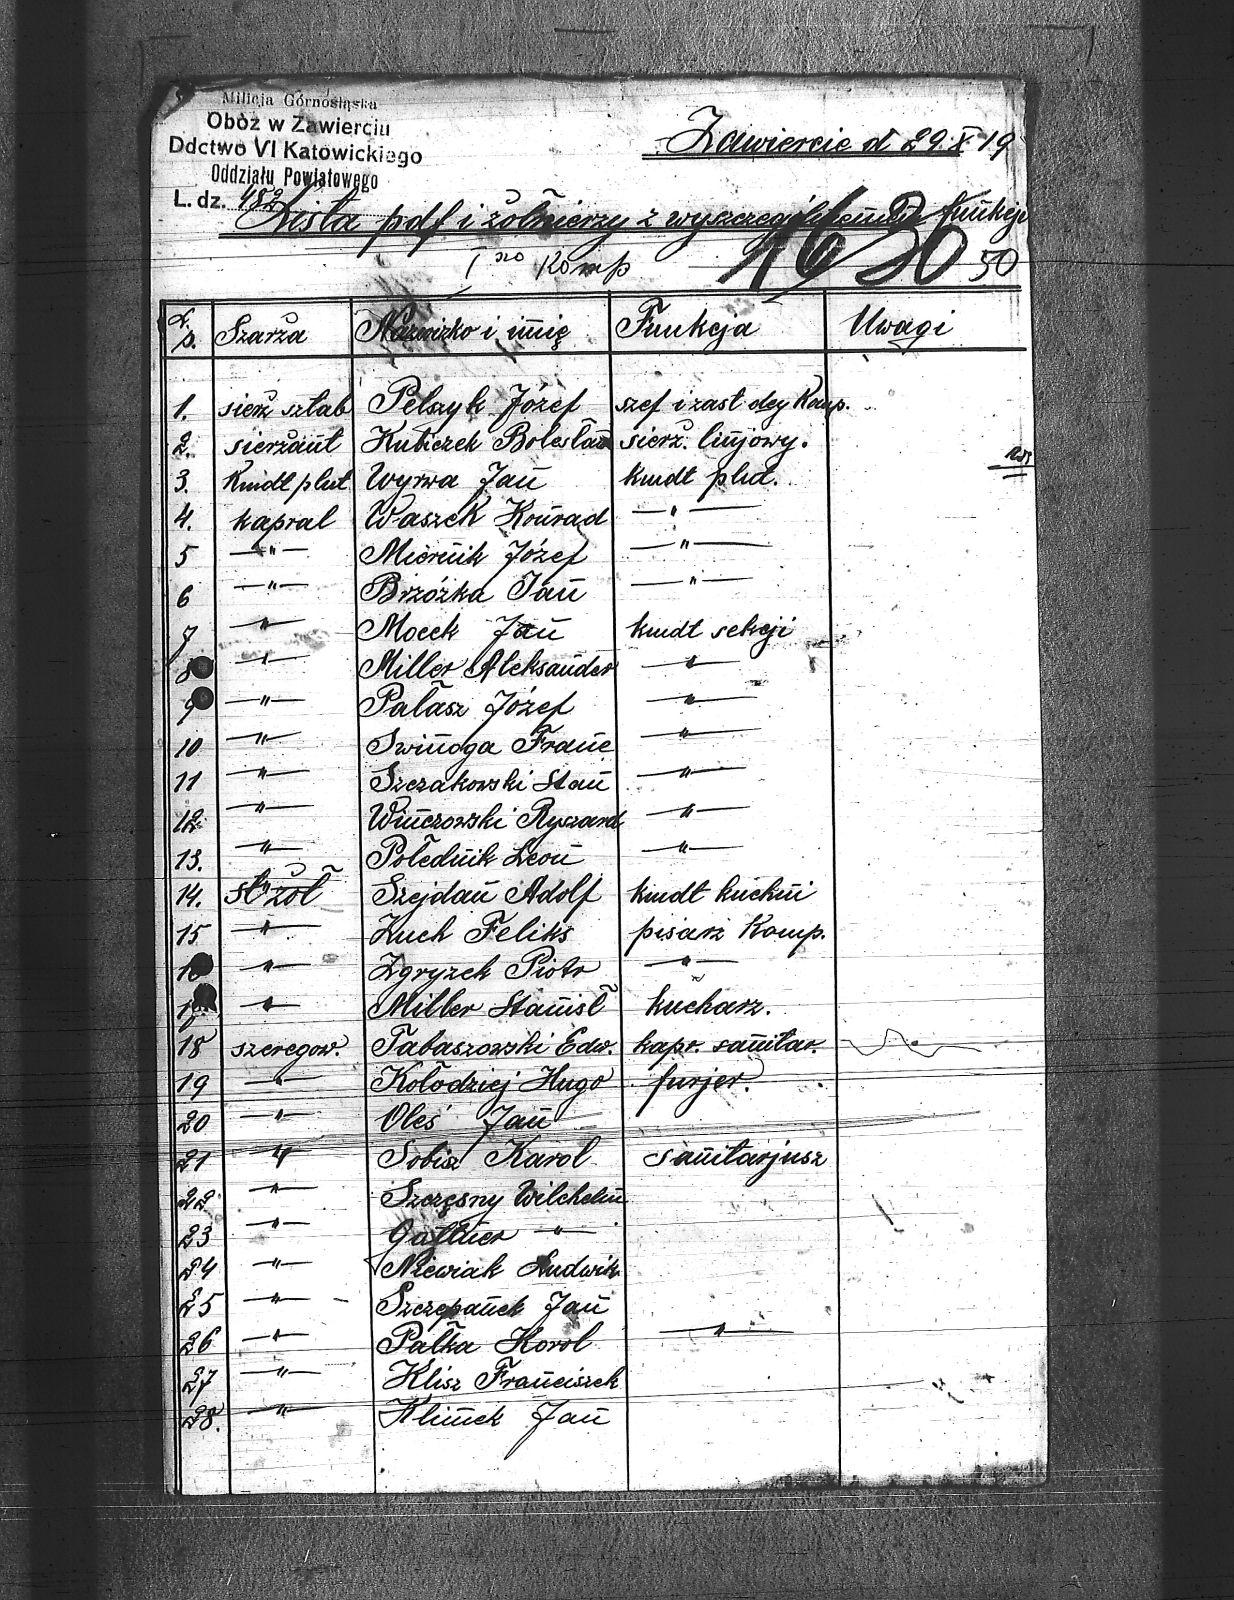 Milicja Górnośląska
Obóz w Zawierciu
Ddctwo VI Katowickiego
Oddziału Powiatowego
L. dz. 482
Zawiercie d 29 X 19
Lista pdf i żołnierzy z wyszczególnieniem funkcji
I komp 1630 50
L. p. Szarża Nazwizko i imię Funkcja Uwagi
1. sierż sztab Pelszyk Józef szef i zast dcy Komp.
2. sierżant Kubiczek Bolesław sierż. linjowy.
3. Kmdt plut Wyrwa Jan kmdt plut.
4. kapral Waszek Konrad — " —
5 — " — Miernik Józef — " —
6 — " — Brzózka Jan — " —
7 — " — Mocek Jan kmdt sekcji
8 — " — Miller Aleksander — " —
9 — " — Pałasz Józef — " —
10 — " — Swinoga Franc — " —
11 — " — Szczakowski Stan — " —
12 — " — Winczowski Ryszard — " —
13. — " — Połednik Leon — " —
14. st żoł Szejdan Adolf kmdt kuchni
15 — " — Kuch Feliks pisarz Komp.
16 — " — Zgryzek Piotr — " —
17 — " — Miller Stanisł kucharz.
18 szeregow. Tabaszowski Edw. kapr. sanitar.
19 — " — Kołodziej Hugo furjer.
20 — " — Oleś Jan
21 — " — Sobisz Karol sanitarjusz
22 — " — Szczęsny Wilchelm
23 — " — — " —
24 — " — Niewiak Ludwik
25 — " — Szczepanek Jan
26 — " — Pałka Korol — " —
27 — " — Klisz Franciszek
28. — " — Klimek Jan